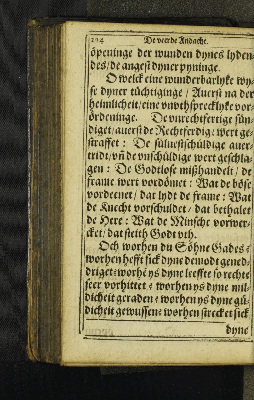 De veerde Andacht.
öpeninge der wunden dynes lyden-
des/ de angest dyner pyninge.
O welck eine wunderbarlyke wy-
se dyner tüchtiginge / Auerst na der
heimlicheit/ eine vnwthsprecklyke vor-
ördeninge. De vnrechtfertige sün-
diget/ auerst de Rechtferdig: wert ge-
straffet : De süluestschüldige auer-
tridt/ vñ de vnschüldige wert geschla-
gen : De Godtlose mißhandelt / de
frame wert vordömet : Wat de böse
vordeenet/ dat lydt de frame : Wat
de Knecht vorschuldet / dat bethalet
de Here : Wat de Minsche vorwer-
cket/ dat steith Godt vth.
Och worhen du Söhne Gades :
worhen hefft sick dyne demodt gened-
driget: worhē ys dyne leeffte so rechte
seer vorhittet : worhen ys dyne mil-
dicheit geraden : worhen ys dyne gü-
dicheit gewussen: worhen strecket sick
dyne